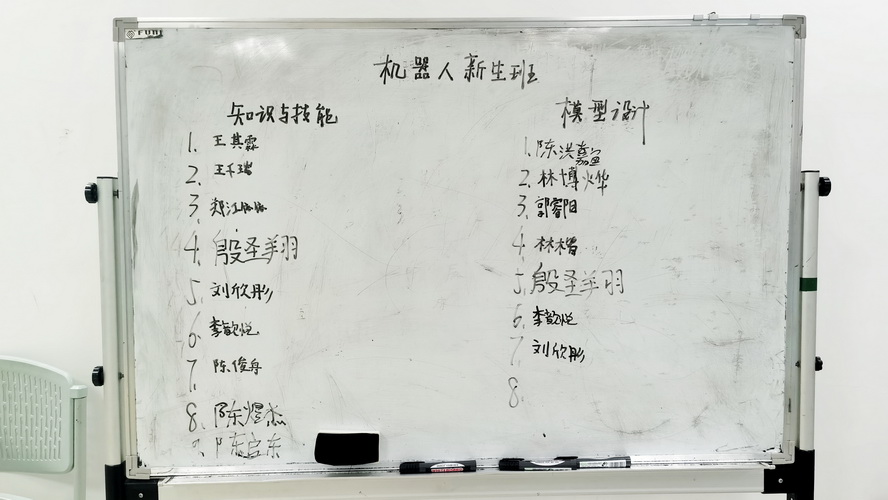 机器人新生班
知识与技能
1. 王其霖
2. 王千瑞
3. 郑江
4. 殷圣翔羽
5. 刘欣彤
6. 李歆悦
7. 陈俊舟
8. 陈煜杰
9. 陈启东
模型设计
1. 陈洪嘉
2. 林博烨
3. 郭睿阳
4. 林楷
5. 殷圣翔羽
6. 李歆悦
7. 刘欣彤
8.